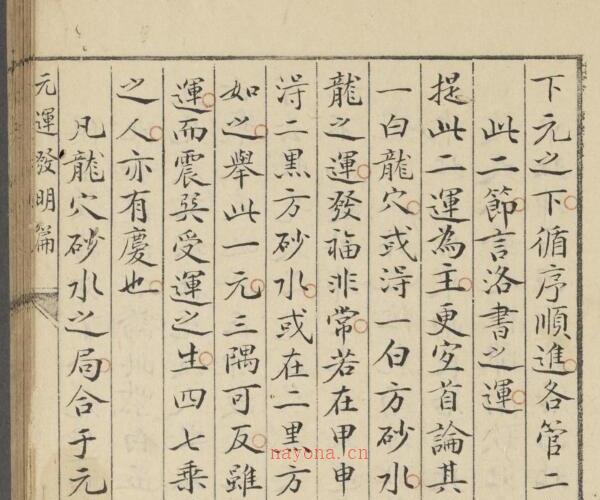 下元之下循序順進各管二
此二節言洛書之運
提此二運為主更宜首論其
一白龍穴或淂一白方砂水
龍之運發福非常若在甲申
淂二黑方砂水或在二黑方
如之舉此一元三隅可反雖
運而震巽受運之生四七乘
之人亦有慶也
凡龍穴砂水之局合于元
元運發明篇
nayona.cn